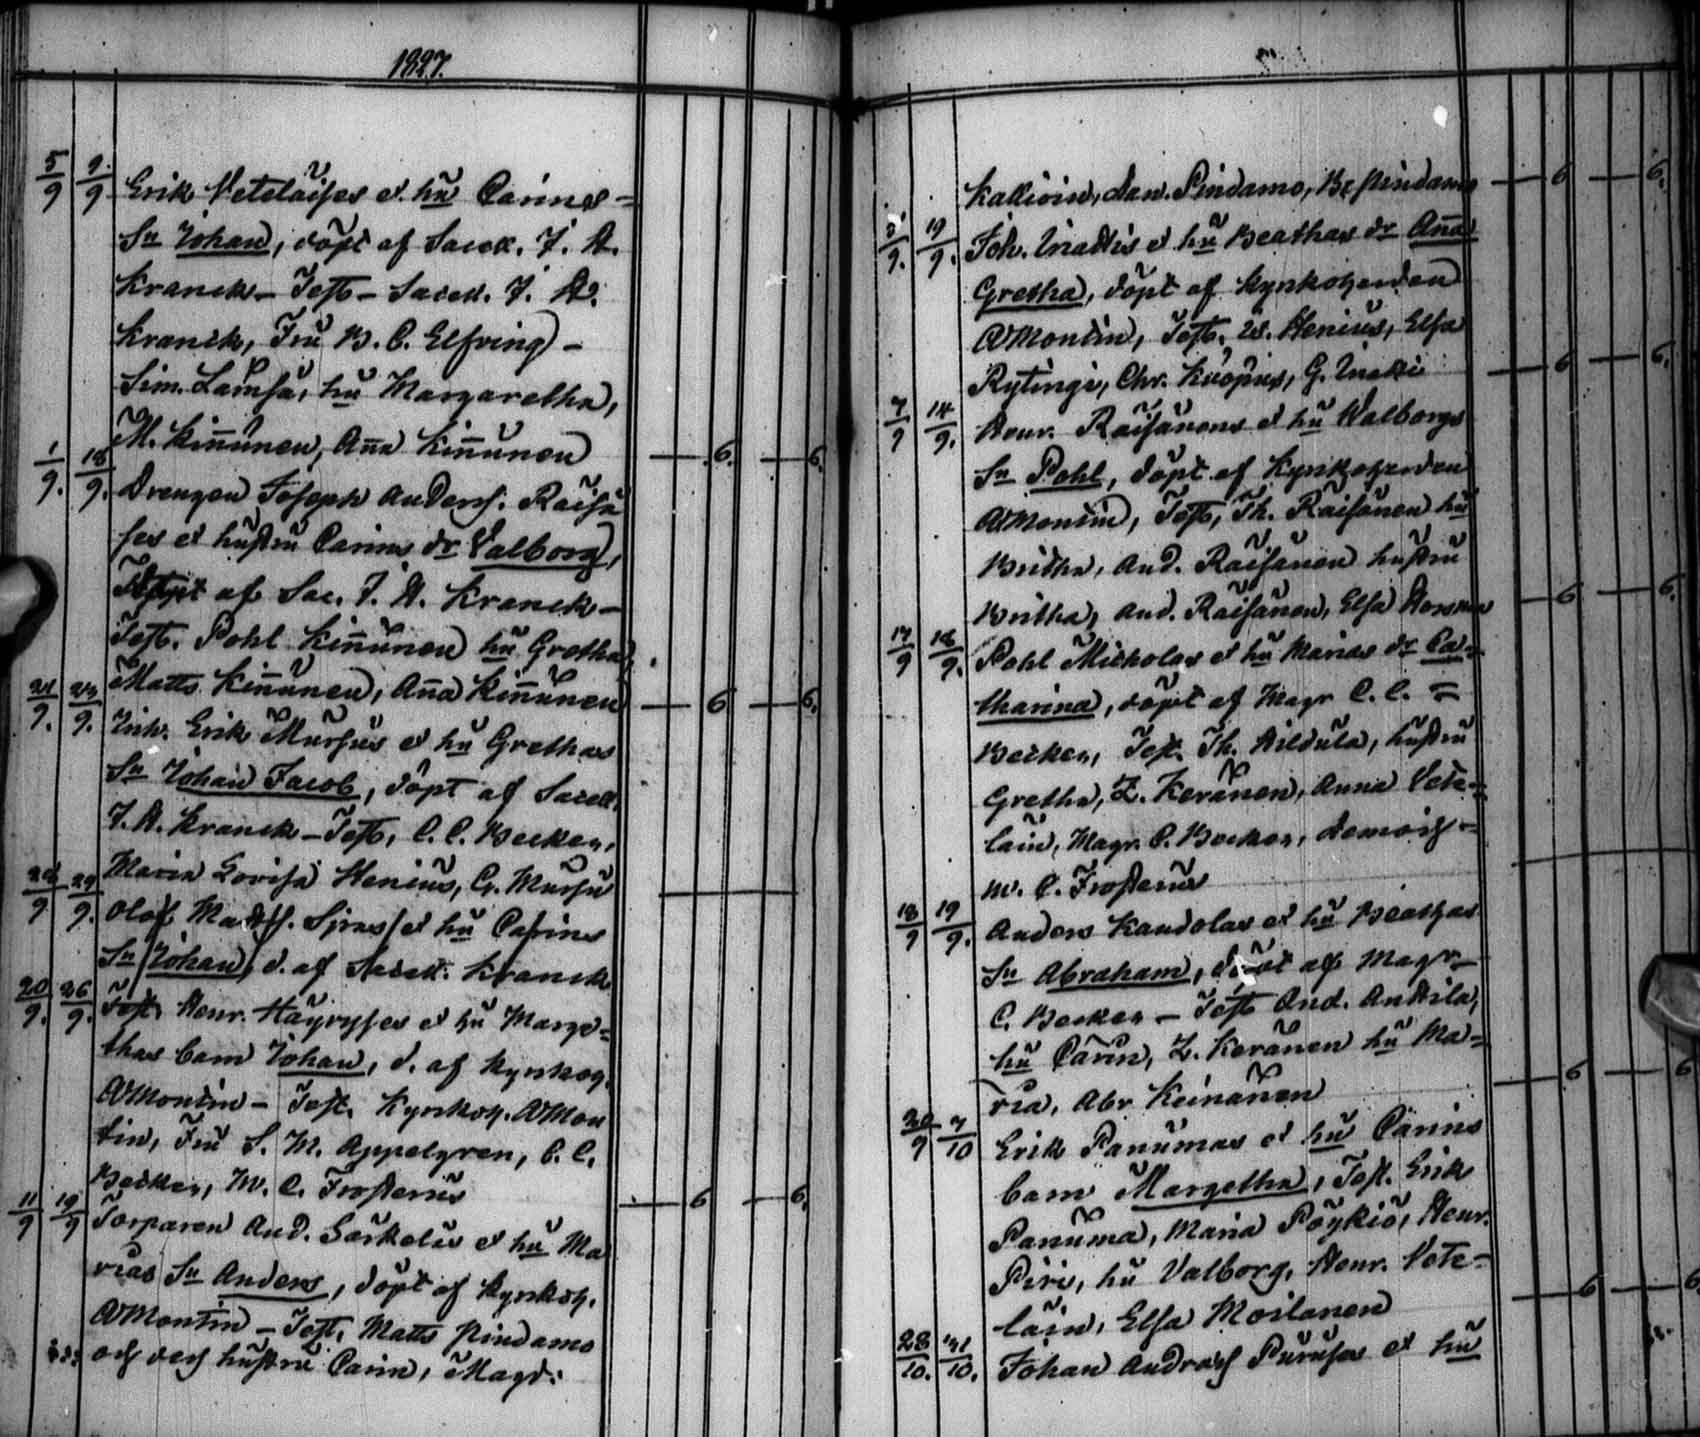 1827.
5/9 9/9 Erik Vetelaises et hu Carins -
Sn Johan, döpt af Sacell. J. A.
Kranck - Test - Sacell. J. A.
Kranck, Fru B. C. Elfving -
Sim. Lämsä, hu Margaretha,
M. Kinnunen, Anna Kinnunen 6. 6.
1/9. 18/9. Drengen Joseph Anderss. Räisä
ses et hustru Carins dr Valborg,
döpt af Sac. J. A. Kranck -
Test. Pohl Kinnunen hu Gretha,
Matts Kinnunen, Anna Kinnunen 6 6.
21/9. 23/9. Inh. Erik Mursus et hu Grethas
Sn Johan Jacob, döpt af Sacell.
J. A. Kranck - Test, C. C. Becker,
Maria Lovisa Henius, C. Mursu
28/9 29/9. Olof Mattss. et hu Carins
Sn Johan, d. af Sacell. Kranck
20/9. 26/9. Test, Henr. Häyryses et hu Marge=
thas barn Johan, d. af Kyrkog.
Montin - Test. Kyrkoh. Mon
tin, Fru S. M. Appelgren, C. C.
Becker, M. C. Frosterus 6 6.
11/9 19/9 Torparen And. Särkelas et hu Ma
rias Sn Anders, döpt af Kyrkoh.
Montin - Test, Matts Pindamo
och dess hustru Carin, Magd:
Kallioin, Dan. Pindamo, Br Pindamo 6 6.
5/9. 19/9. Joh. Matthis et hu Beathas dr Anna
Gretha, döpt af Kyrkoherden
Montin, Test. Henius, Elsa
Rytinge, Chr. G. 6 6.
7/9 14/9. Henr. Räisänens et hu Walborgs
Sn Pohl, döpt af Kyrkoherden
Montin, Test, Th. Räisänen hu
Britha, And. Räisänen hustru
Britha, And. Räisänen, Elsa 6 6.
17/9 18/9. Pohl Mickolas et hu Marias dr Ca=
tharina, döpt af Magr C. C. =
Becker, Test. Th. hustru
Gretha, Z. Keränen, Anna Vete=
läin, Magr. C. Becker, demois=
m. C. Frosterus
18/9 19/9. Anders Kandolas et hu Beathas
Sn Abraham, döpt af Magr -
C. Becker - Test And. Anttila,
hu Carin, Z. Keränen hu Ma=
ria, Abr Keinänen 6 6
30/9 7/10 Erik Panumas et hu Carins
barn Margetha, Test. Erik
Panuma, Maria Pöykiö, Henr.
Piri, hu Valborg, Henr. Vete=
läin, Elsa Moilanen 6 6
28/10. 31/10. Johan Andrass Purases et hu